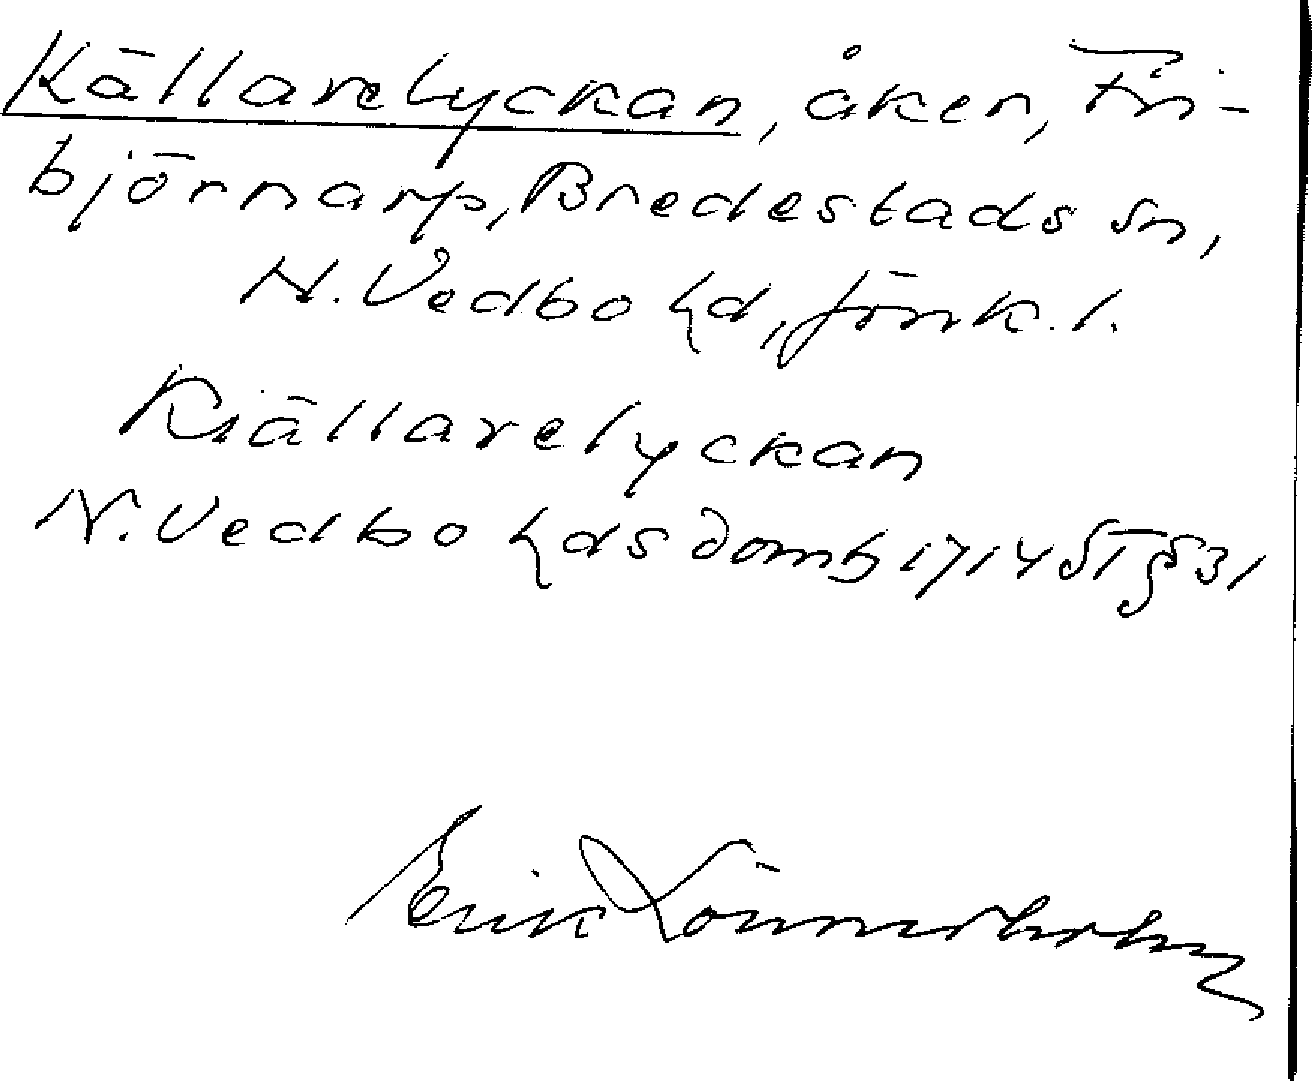 Källarelyckan, åker, Fri-
björnarp, Bredestads sn,
N. Vedbo hd, Jönk. l.
Kiällarelyckan
N. Vedbo hds domb 1714 ST § 31
Erik Lönnerholm